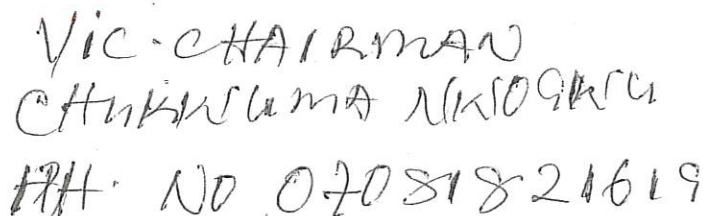 VIC-CHAIRMAN
CHUKKWUMA NKWOGKWU
PH. NO 07081821619